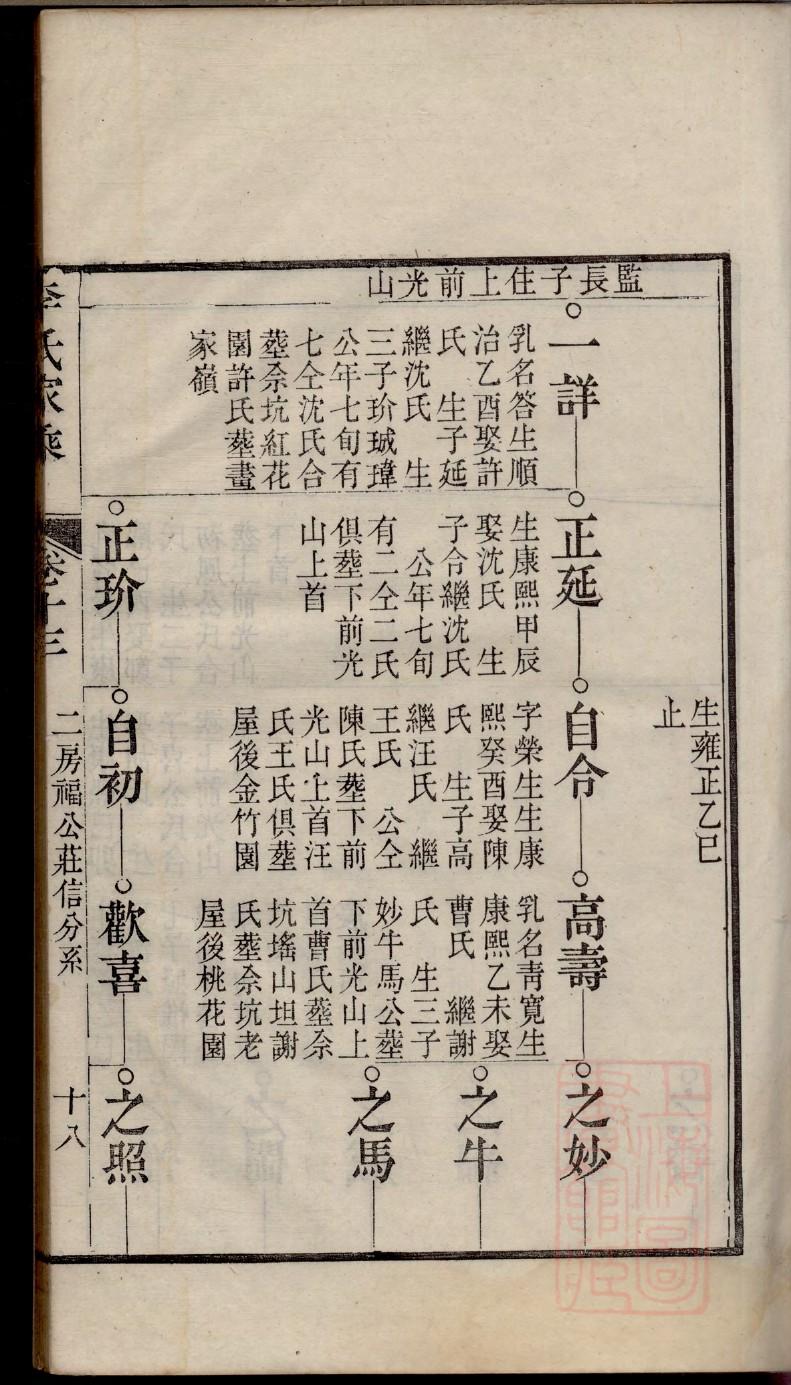 生雍正乙巳
止
監長子住上前光山
一詳
乳名答生順
治乙酉娶許
氏　生子延
繼沈氏　生
三子玠珹瑋
公年七旬有
七仝沈氏合
塟佘坑紅花
園許氏塟畫
家嶺
正延
生康熙甲辰
娶沈氏　生
子令繼沈氏
公年七旬
有二仝二氏
俱塟下前光
山上首
自令
字榮生生康
熙癸酉娶陳
氏　生子高
繼汪氏　繼
王氏　公仝
陳氏塟下前
光山上首汪
氏王氏俱塟
屋後金竹園
高壽
乳名靑寬生
康熙乙未娶
曹氏　繼謝
氏　生三子
妙牛馬公塟
下前光山上
首曹氏塟佘
坑瑤山坦謝
氏塟佘坑老
屋後桃花園
之妙
之牛
之馬
正玠
自初
歡喜
之照
李氏家乘
卷十三
二房福公莊信分系
十八